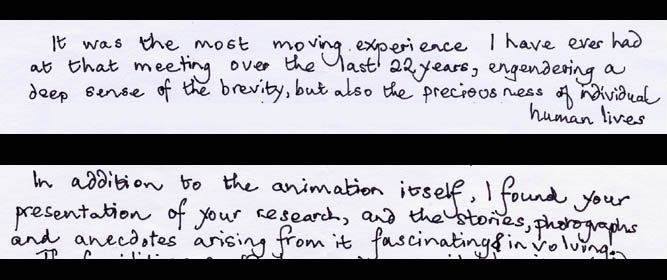 It was the most moving experience I have ever had
at that meeting over the last 22 years, engendering a
deep sense of the brevity, but also the preciousness of individual
human lives
In addition to the animation itself, I found your
presentation of your research, and the stories, photographs
and anecdotes arising from it fascinating & involving.